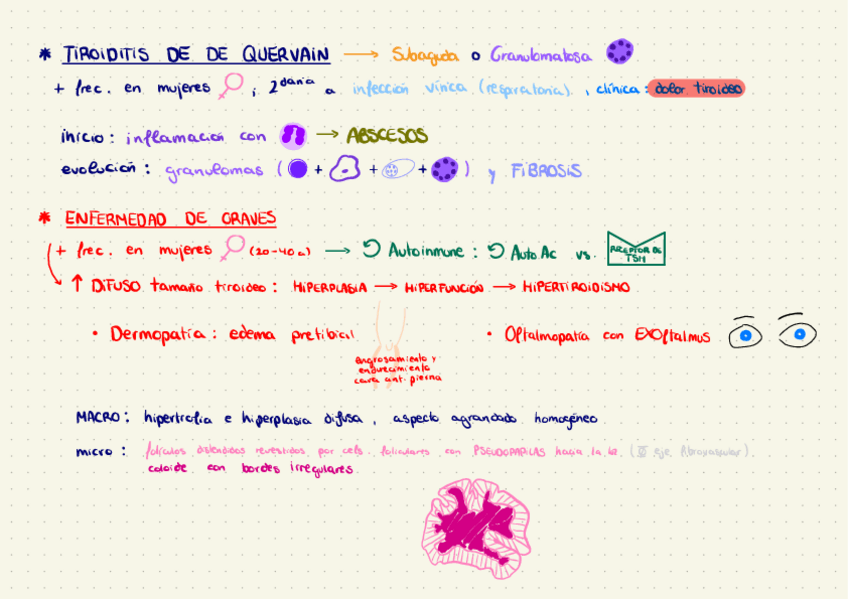 * TIROIDITIS DE DE QUERVAIN → Subaguda o Granulomatosa
+ frec. en mujeres ♀ ; 2daria a infección vírica (respiratoria), clínica: dolor tiroideo
inicio: inflamación con → ABSCESOS
evolución: granulomas ( + + + ) y FIBROSIS
* ENFERMEDAD DE GRAVES
+ frec. en mujeres ♀ (20-40a) → Autoinmune: AutoAc vs. RECEPTOR DE TSH
↑ DIFUSO tamaño tiroideo: HIPERPLASIA → HIPERFUNCIÓN → HIPERTIROIDISMO
• Dermopatía: edema pretibial • Oftalmopatía con EXOftalmus
engrosamiento y
endurecimiento
cara ant. pierna
MACRO: hipertrofia e hiperplasia difusa, aspecto agrandado homogéneo
micro: folículos distendidos revestidos por cels. foliculares con PSEUDOPAPILAS hacia la luz ( eje fibrovascular).
coloide con bordes irregulares